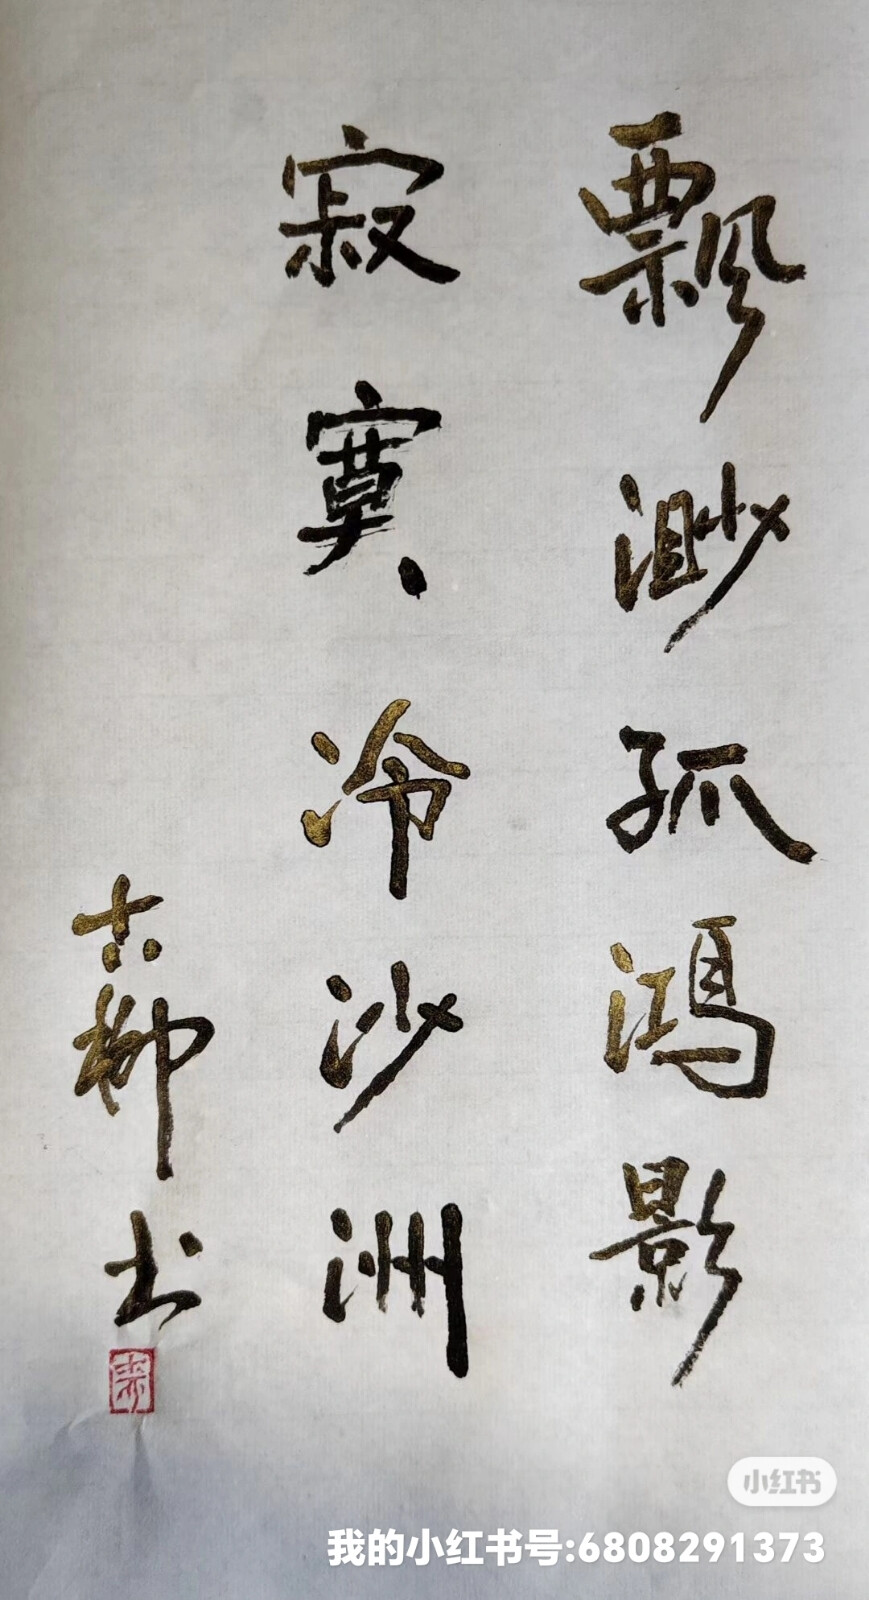 飘渺孤鸿影
寂寞冷沙洲
柳书
小红书
我的小红书号:6808291373